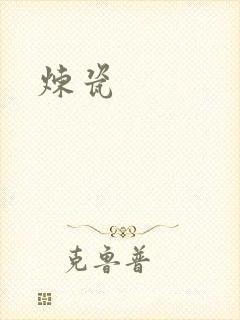 炼瓷
克鲁普